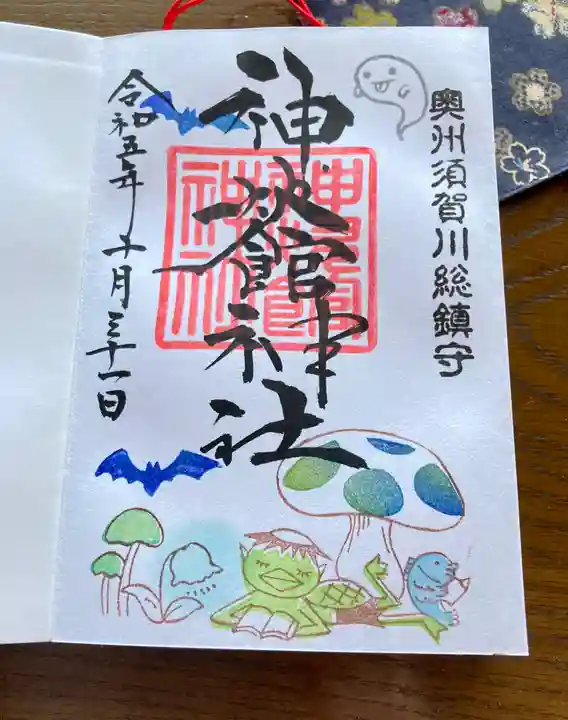 奥州須賀川総鎮守
神炊館神社
令和五年十月三十一日